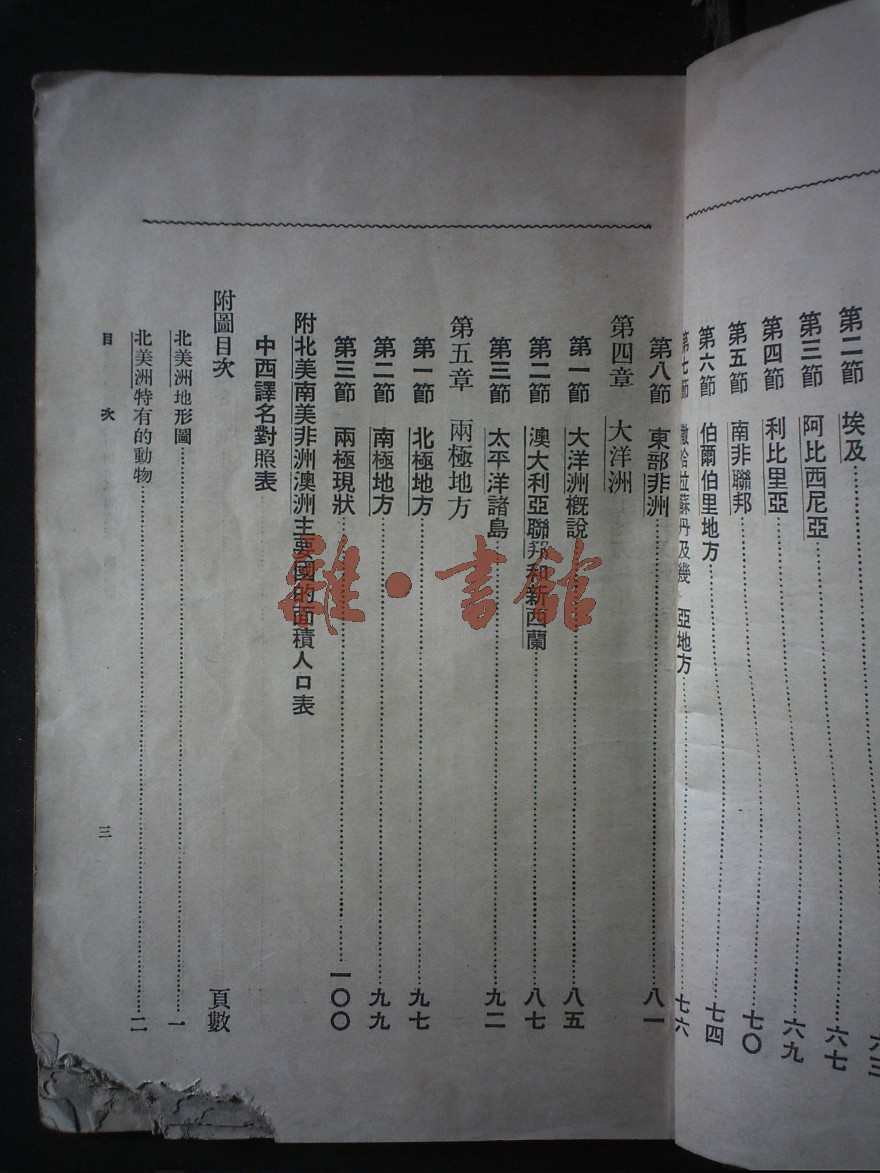 第二節 埃及……六三
第三節 阿比西尼亞……六七
第四節 利比里亞……六九
第五節 南非聯邦……七〇
第六節 伯爾伯里地方……七四
第七節 撒哈拉蘇丹及幾 亞地方……七六
第八節 東部非洲……八一
第四章 大洋洲
第一節 大洋洲概說……八五
第二節 澳大利亞聯邦和新西蘭……八七
第三節 太平洋諸島……九二
第五章 兩極地方
第一節 北極地方……九七
第二節 南極地方……九九
第三節 兩極現狀……一〇〇
附北美南美非洲澳洲主要國的面積人口表
中西譯名對照表
附圖目次 頁數
北美洲地形圖……一
北美洲特有的動物……二
目次 三
雜·書館